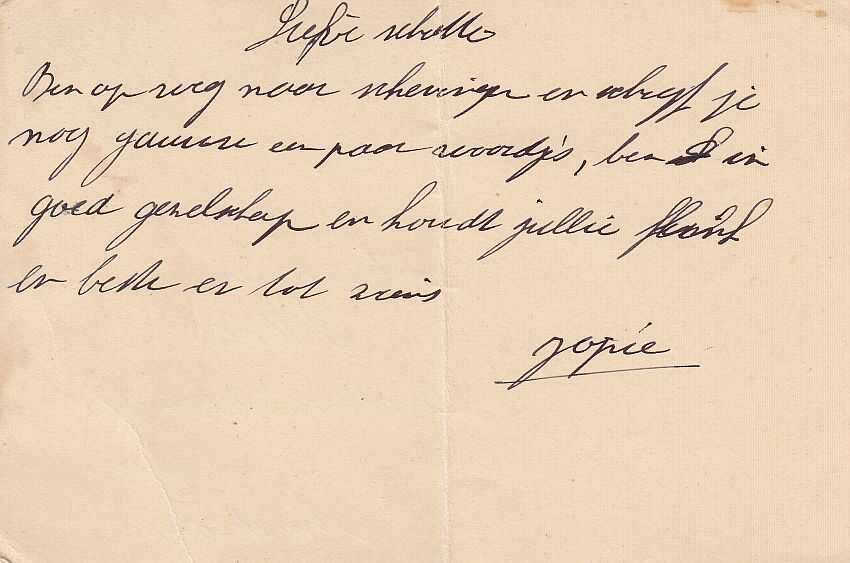 Liefve schatte
Ben op weg naar scheveningen en schrijf je
nog gauw een paar woordjes, ben in
goed gezelschap en houdt jullie flink
en beste er tot ziens
Jopie